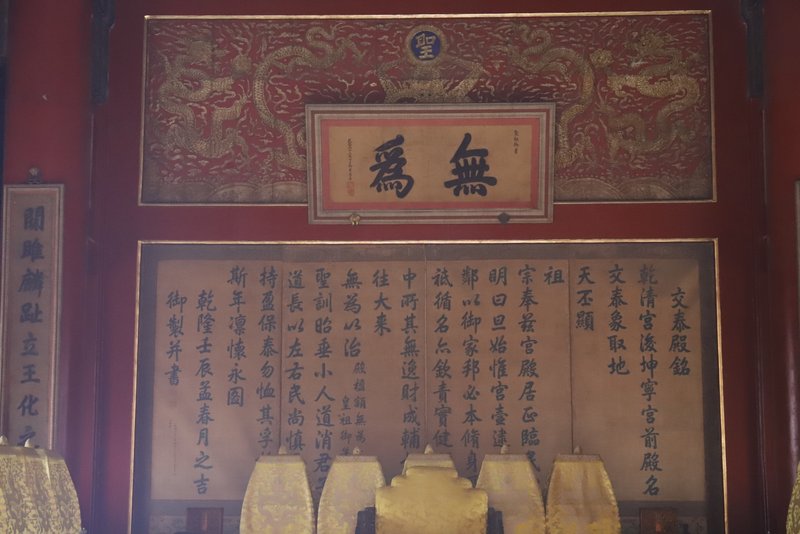 聖
無爲
交泰殿銘
乾清宮後坤寧宮前殿名
交泰象取地
天丕顯
祖
宗奉茲宮殿居正臨民
明曰旦始惟宮壼逮
鄰以御家邦必本脩身
祗循名亦欽責實健
中所其無逸財成輔
往大来
無為以治 殿楹額無為
皇祖御筆
聖訓昭垂小人道消君
道長以左右民尚慎
持盈保泰勿恤其孚
斯年凛懷永圖
乾隆壬辰孟春月之吉
御製并書
關雎麟趾立王化